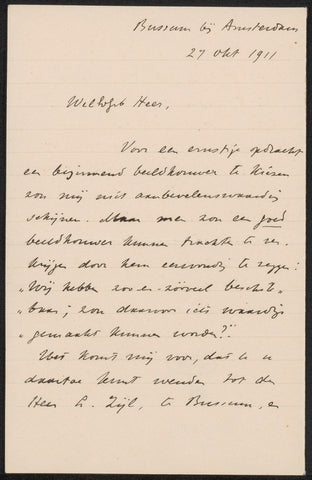 Bussum bij Amsterdam
27 Okt 1911
WelEdGeb Heer,
Voor een ernstige opdracht
een beginnend beeldhouwer te kiezen
zou mij niet aanbevelenswaardig
schijnen. Maar men zou een goed
beeldhouwer kunnen trachten te ver-
krijgen door hem eenvoudig te zeggen:
„Wij hebben zoo en zooveel beschik-
„baar; zou daarvoor iets waardigs
„gemaakt kunnen worden?".
Het komt mij voor, dat u u
daartoe kunt wenden tot den
Heer L. Zijl, te Bussum, en